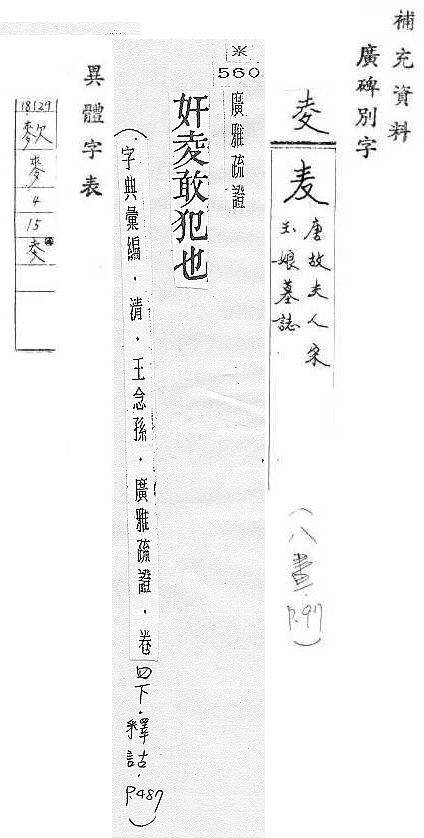 補充資料
廣碑別字
夌
唐故夫人宋
玉娘墓誌
(八畫.P.97)
※
560
廣雅疏證
奸夌敢犯也
(.字典彙編.清.王念孫.廣雅疏證.卷四下.釋詁.P.487)
異體字表
18129
麥
4
15